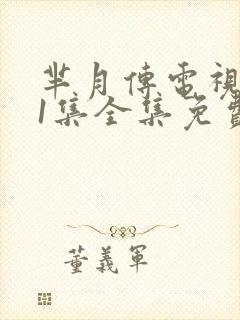 芈月傳電視
1集全集免費
董義軍